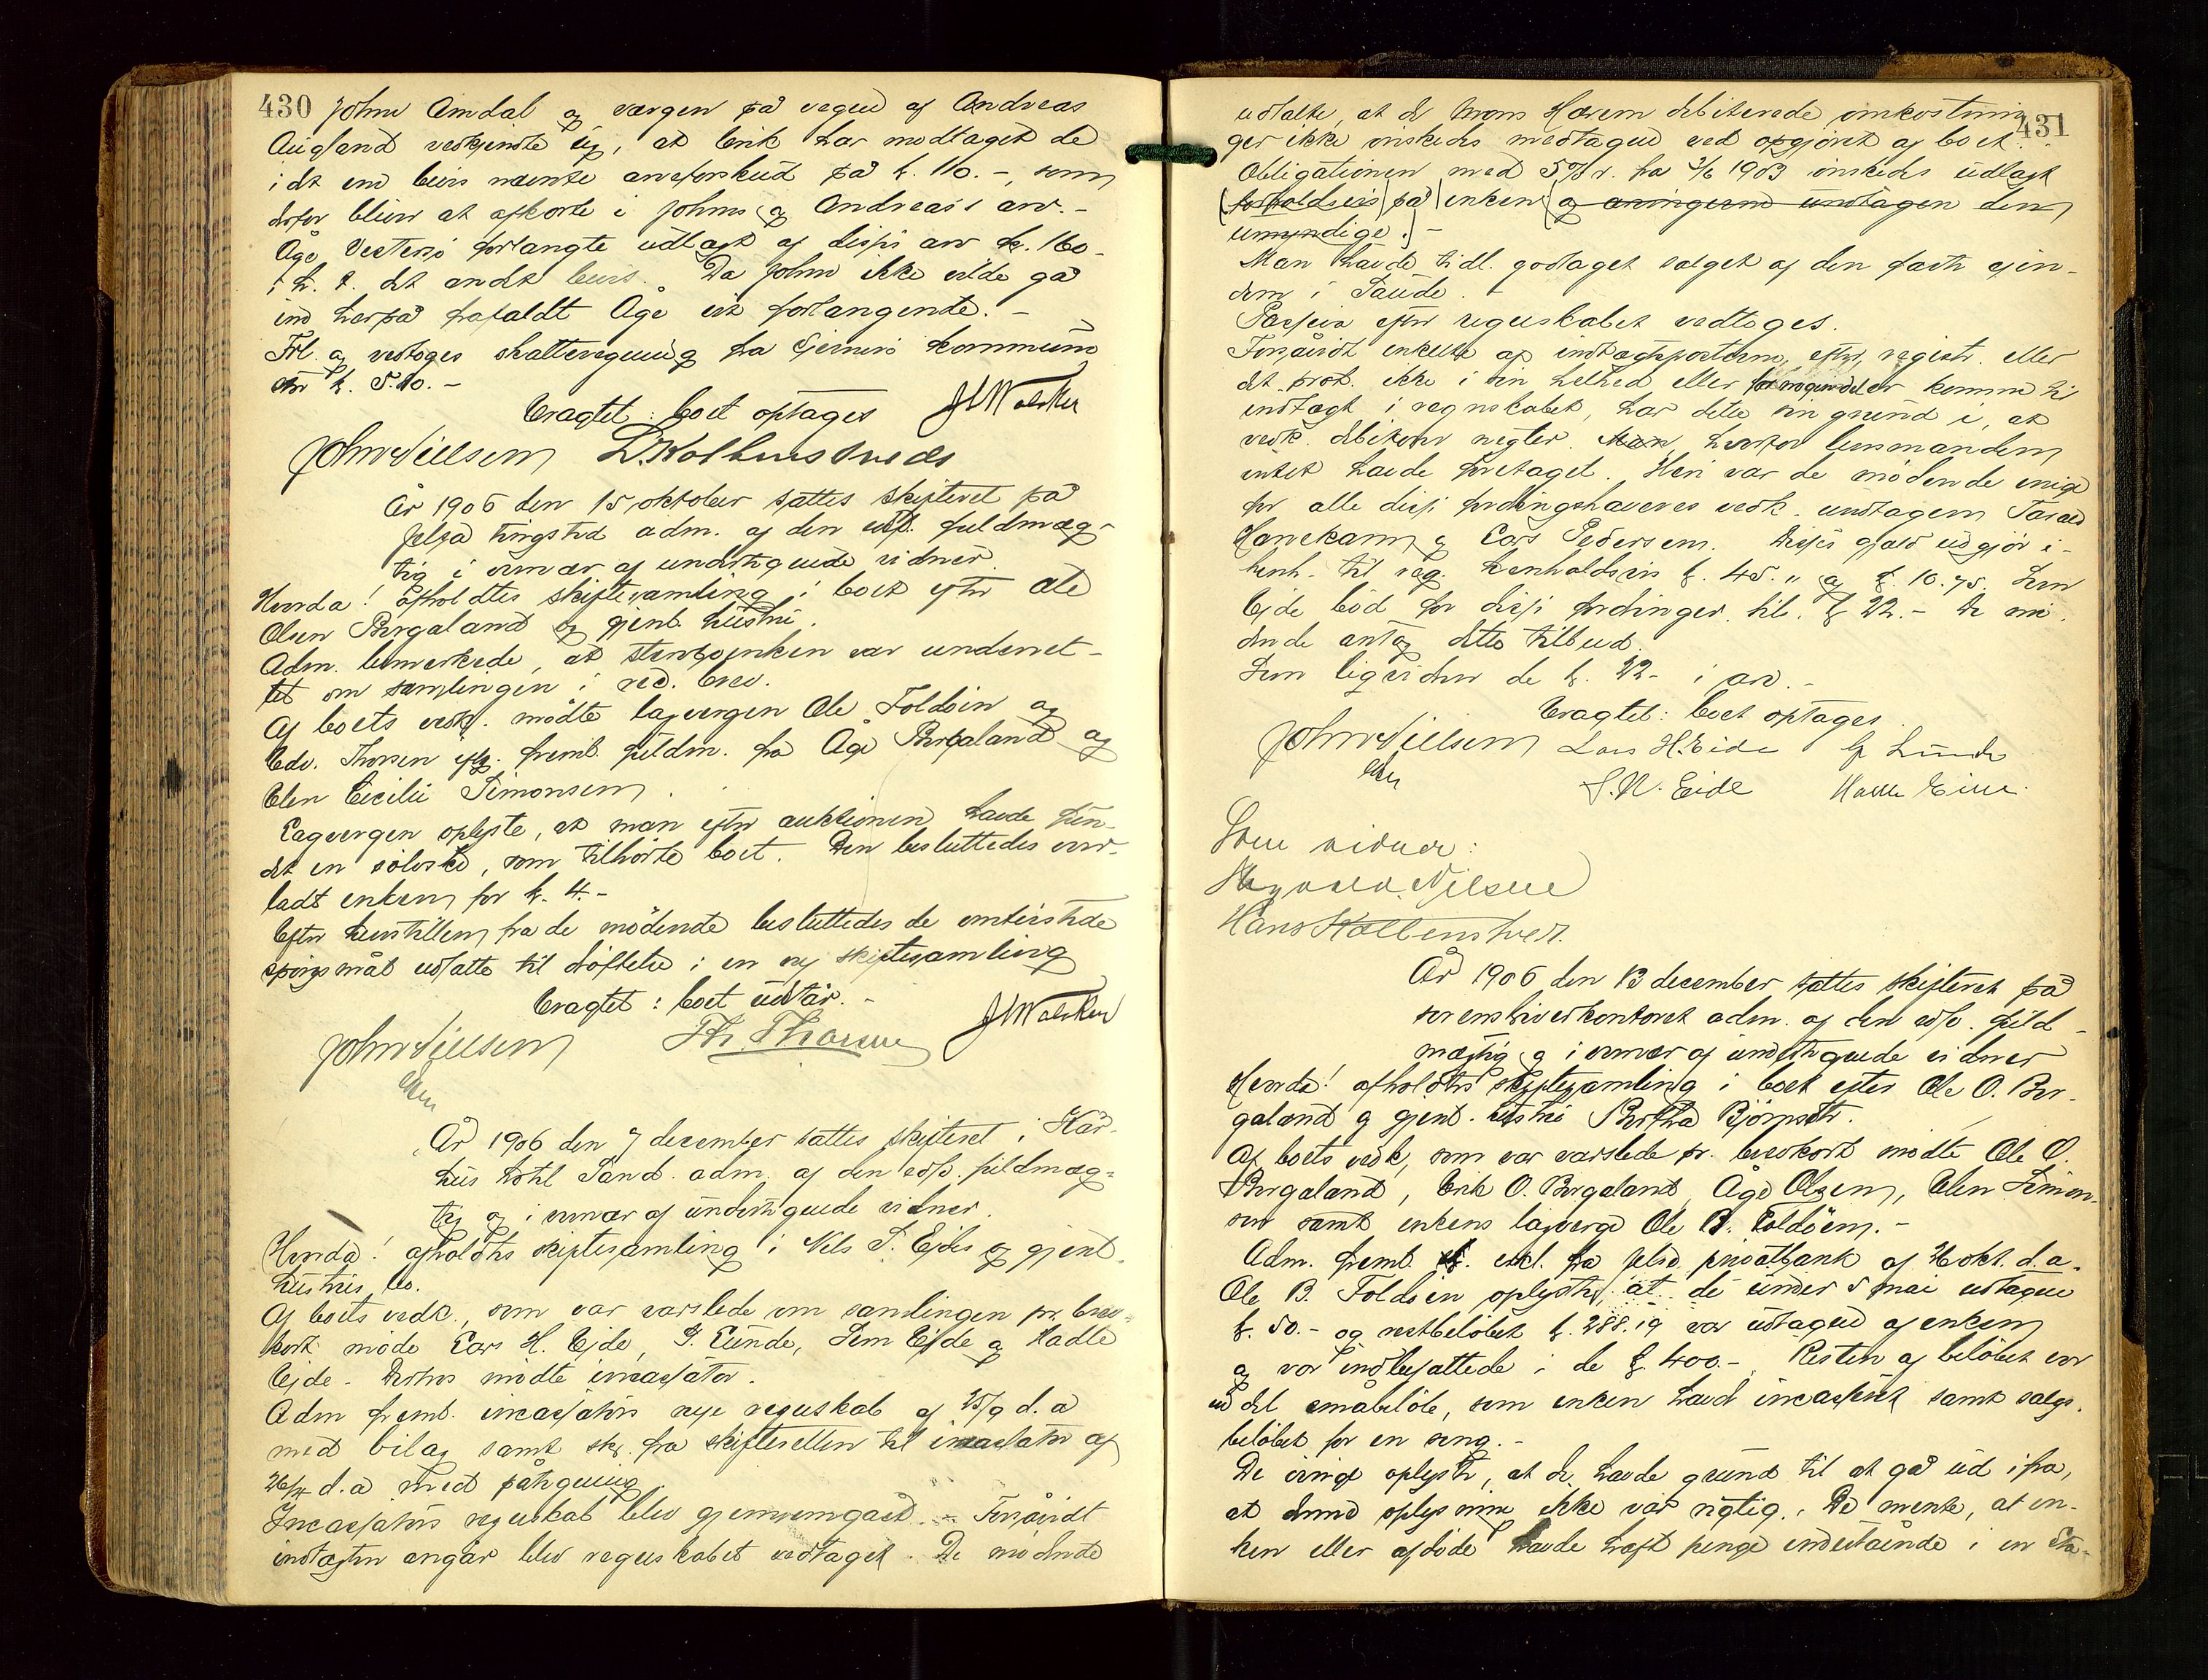 430 John Amdal og vergen på vegne af Andreas
Augland vedkjendte sig, at Erik har modtaget de
i det ene bevis nævnte arveforskud på k. 110.-, som
derfor bliver at afkorte i Johns og Andreas's arv.-
Åge Vestersjø forlangte udlagt af disps arv k. 160-
i h. t. det andet bevis. Da John ikke vilde gå
ind herpå frafaldt Åge sit forlangende.-
Frl. og vedtoges skatteregning fra Gjernes kommune
stor k. 5.10.-
Eragtet: boet optages
John Nielsen L. Kolbenstvedt
År 1906 den 15 oktober sattes skifteret på
Jelsa tingsted adm. af den edsf. fuldmæg-
tig i nærvær af undertegnede vidner.
Hvorda! afholdtes skiftesamling i boet efter Ole
Olsen Bergaland og gjenl. hustru.
Adm. bemærkede, at stervboenken var underret-
tet om samlingen i red. brev.
Af boets vedk. mødte lagvergen Ole Foldøin og
Edv. Thorsen eftr. fremb. fuldm. fra Åge Bergaland og
Elen Cicilie Simonsen.
Lagvergen oplyste, at man efter auktionen havde fun-
det en sølvske, som tilhørte boet. Den besluttedes over-
ladt enken for k. 4.-
Efter henstillen fra de mødende besluttedes de omtvistede
spørgsmål udsatte til drøftelse i en ny skiftesamling
Eragtet: boet udstår.-
John Nielsen Th. Thorsen
År 1906 den 7 december sattes skifteret i Kår-
hus hotel Sand adm. af den edsf. fuldmæg-
tig og i nærvær af undertegnede vidner.
Hvorda! afholdtes skiftesamling i Nels S. Ejdes og gjenl.
hustrus bo.
Af boets vedk., som var varslede om samlingen pr. brev-
kort møde Lars H. Ejde, G. Lunde, Sem Ejde og Hadle
Ejde. Derhos mødte incassator.
Adm fremb. incassators nye regnskab af 25/9 d. a
med bilag samt skr. fra skifteretten til incassator af
d. a med påtegning
Incassators regnskab blev gjennemgået.- Forsåvidt
indtægten angår blev regnskabet vedtaget. De mødende
431
udtalte, at de Mons Hærem debiterede omkostnin
ger ikke ønskedes medtagne ved opgjøret af boet.
Obligationen med 5% r. fra 2/6 1903 ønskedes udlagt
(forholdsvis) på enken (og arvingerne undtagen den
umyndige).-
Man havde tidl. godtaget salget af den faste ejen-
dom i Saude.-
Passiva efter regnskabet vedtoges.
Forsåvidt enkelte af indtægtsposterne, efter registr. eller
det prot. ikke i sin helhed eller for nogen del er komme til
indtægt i regnskabet, har dette sin grund i, at
vedk. debitorer negter. hvorfor lensmanden
intet havde foretaget. Heri var de mødende enige
for alle disps fordringshaveres vedk. undtagen Tarald
Hanekam og Lars Pedersen. Disps gjæld udgjør i-
henh. til reg. henholdsvis k. 45.„ og k. 10.75. Sem
Ejde bød for disps fordringer til. k 22.- De mø-
dende antog dette tilbud.
Sem ligviderer de k. 22- i arv.-
Eragtet: boet optages.
John Nielsen Lars H. Eide G Lunde
S. N. Eide Hadle Eide.
Som vidner:
Nilsen
Hans Kolbenstvedt.
År 1906 den 13 december sattes skifteret på
sorenskriverkontoret adm. af den edsf. fuld-
mægtig og i nærvær af undertegnede vidner
Hvorda! afholdtes skiftesamling i boet efter Ole O. Ber-
galand og gjenl. hustru Bertha Bjørnsdtr.
Af boets vedk, som var varslede pr. brevkort mødte Ole O.
Bergaland, Erik O. Bergaland, Åge Olsen, Elen Simon-
sen samt enkens lagverge Ole B. Foldøen.-
Adm. fremb. erkl. fra Jelse privatbank af 26 okt. d. a.
Ole B. Foldøin oplyste, at de under 5 mai udtagne
k. 50.- og restbeløbet k. 288.19 var udtaget af enken
og var indbefattede i de k. 400.- Resten af beløbet var
en del småbeløb, som enken havde incasseret samt salgs-
beløbet for en seng.-
De øvrige oplyste, at de havde grund til at gå ud ifra,
at denne oplysning ikke var rigtig. De mente, at en-
ken eller afdøde havde havt penge indestående i en Sta-